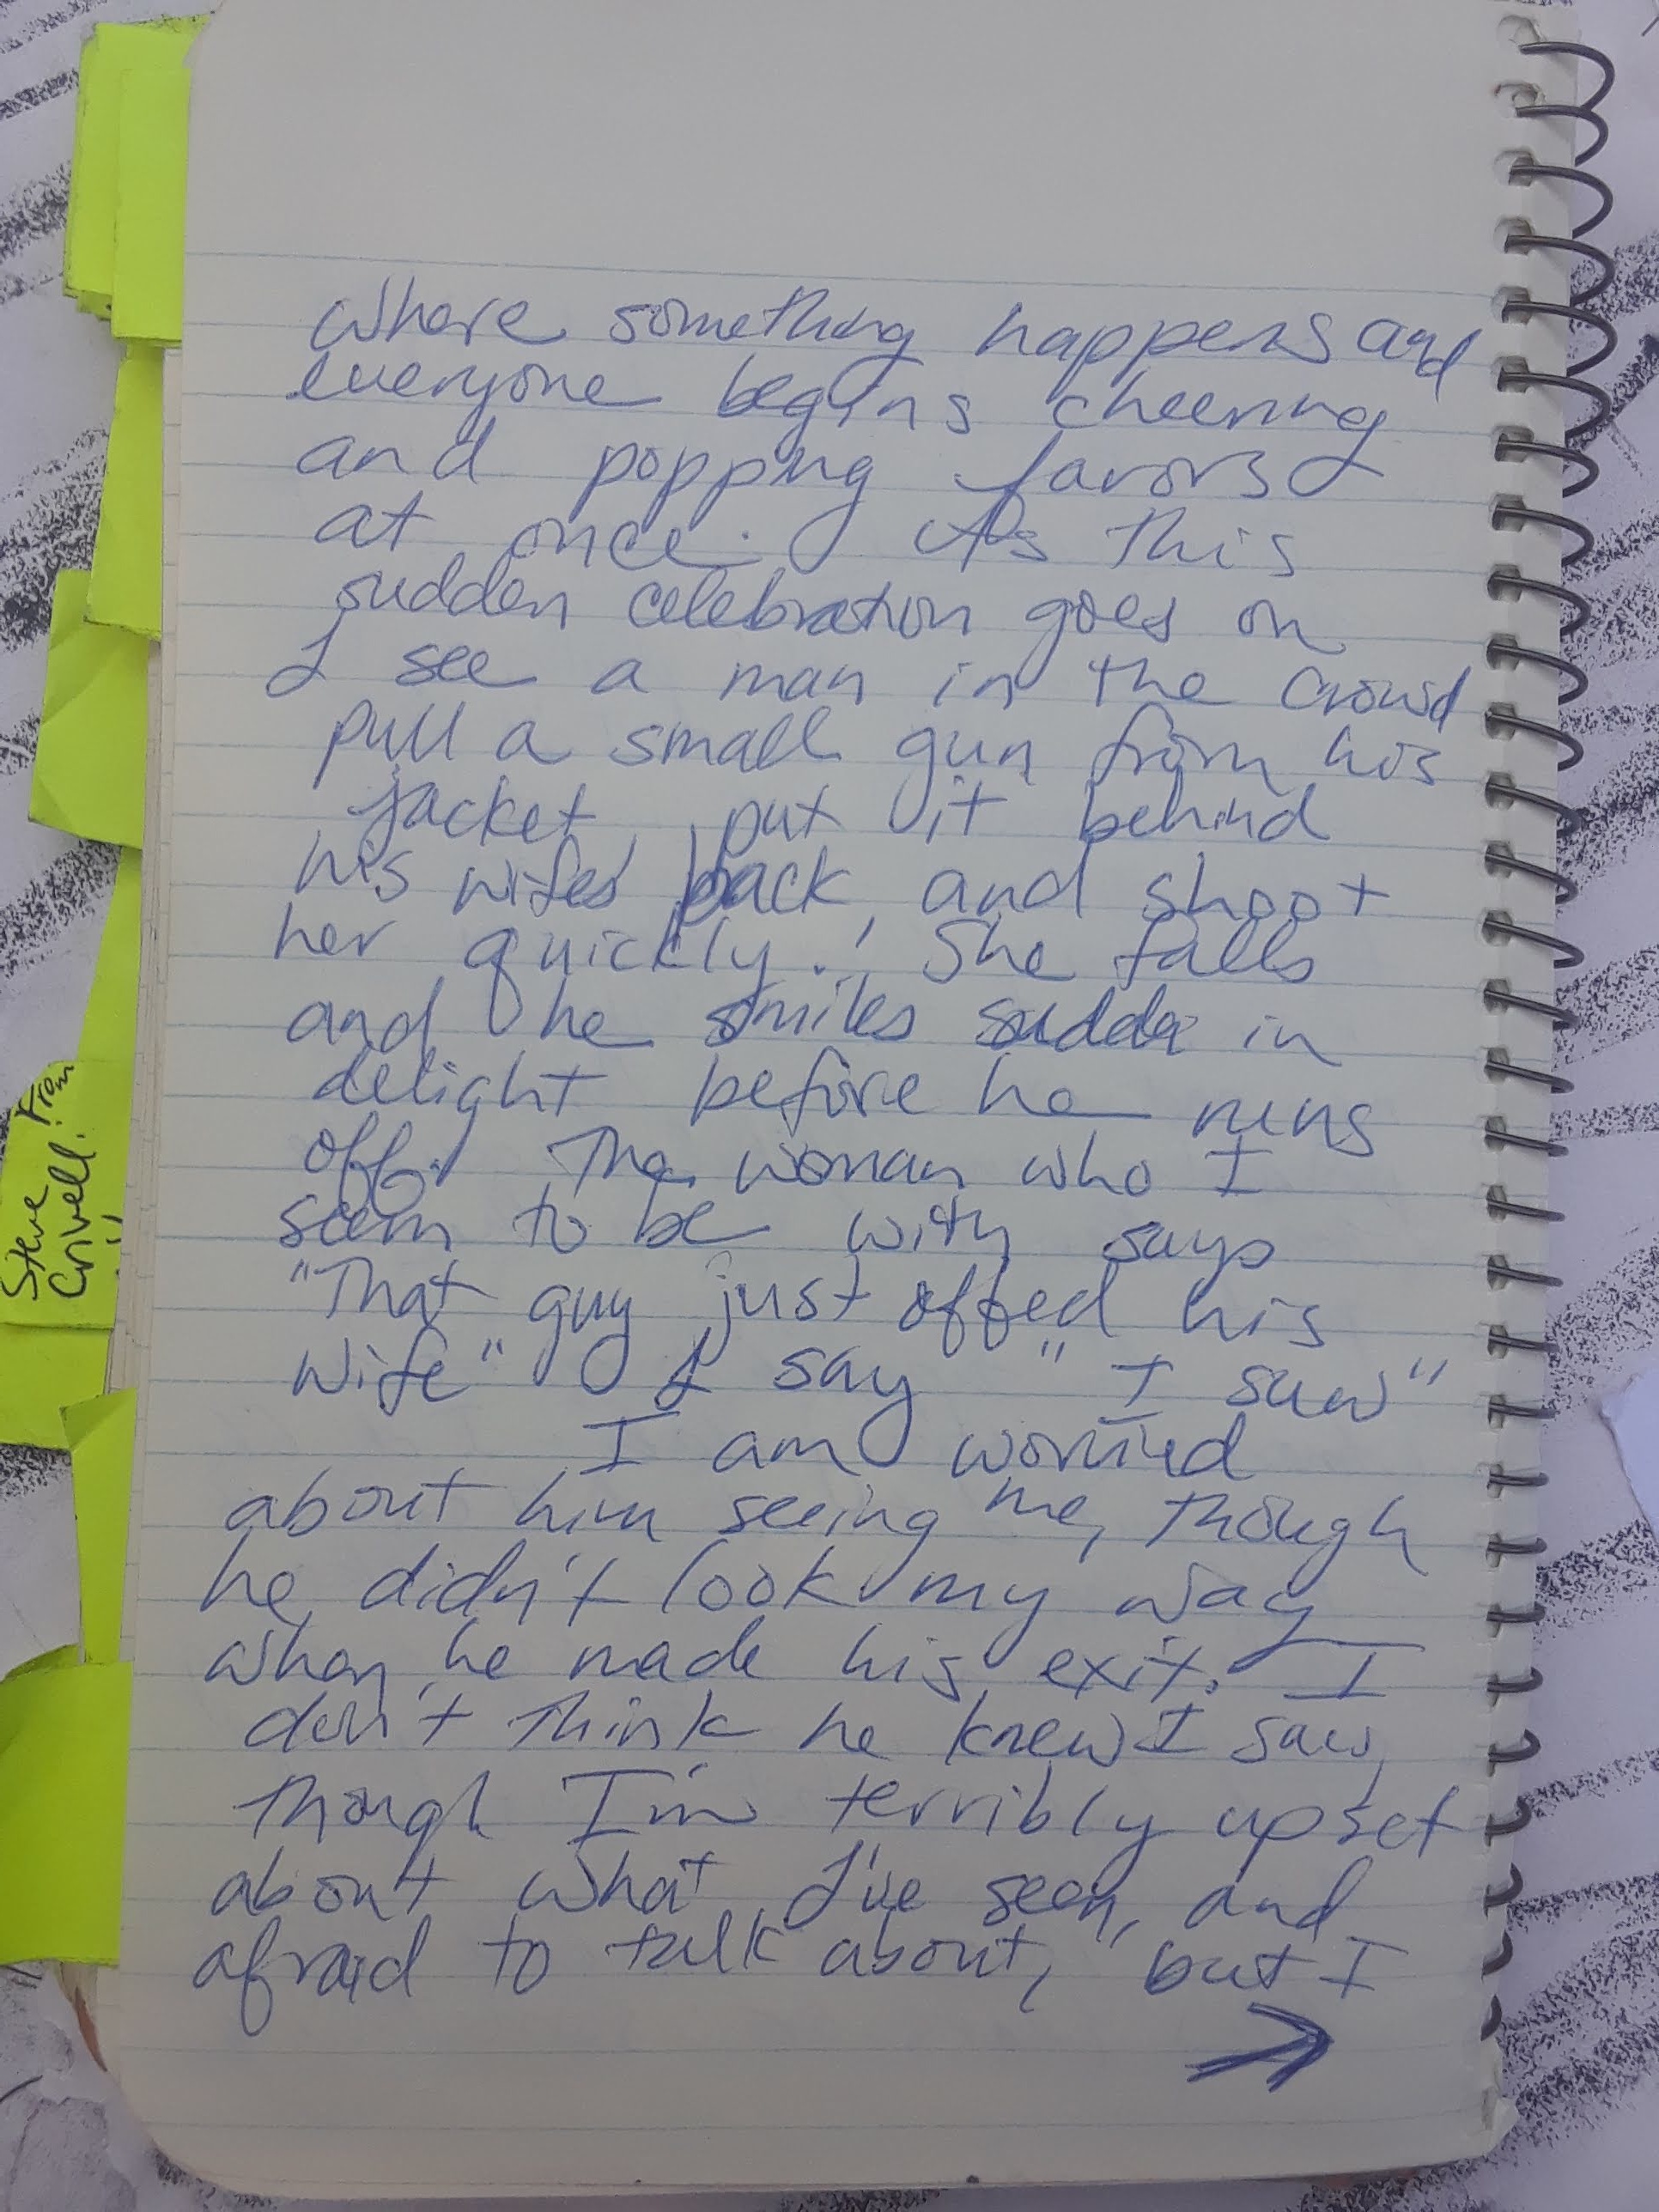 where something happens and
everyone begins cheering
and popping favors
at once. As this
sudden celebration goes on
I see a man in the crowd
pull a small gun from his
jacket, put it behind
his wifes' back, and shoot
her quickly. She falls
and he smiles sudde in
delight before he runs
off. The woman who I
seem to be with says
"That guy just offed his
wife" I say "I saw"
I am worried
about him seeing me, though
he didn't look my way
when he made his exit. I
don't think he knew I saw,
though I'm terribly upset
about what I've seen, and
afraid to talk about, but I
→
From
Steve
Crivell!